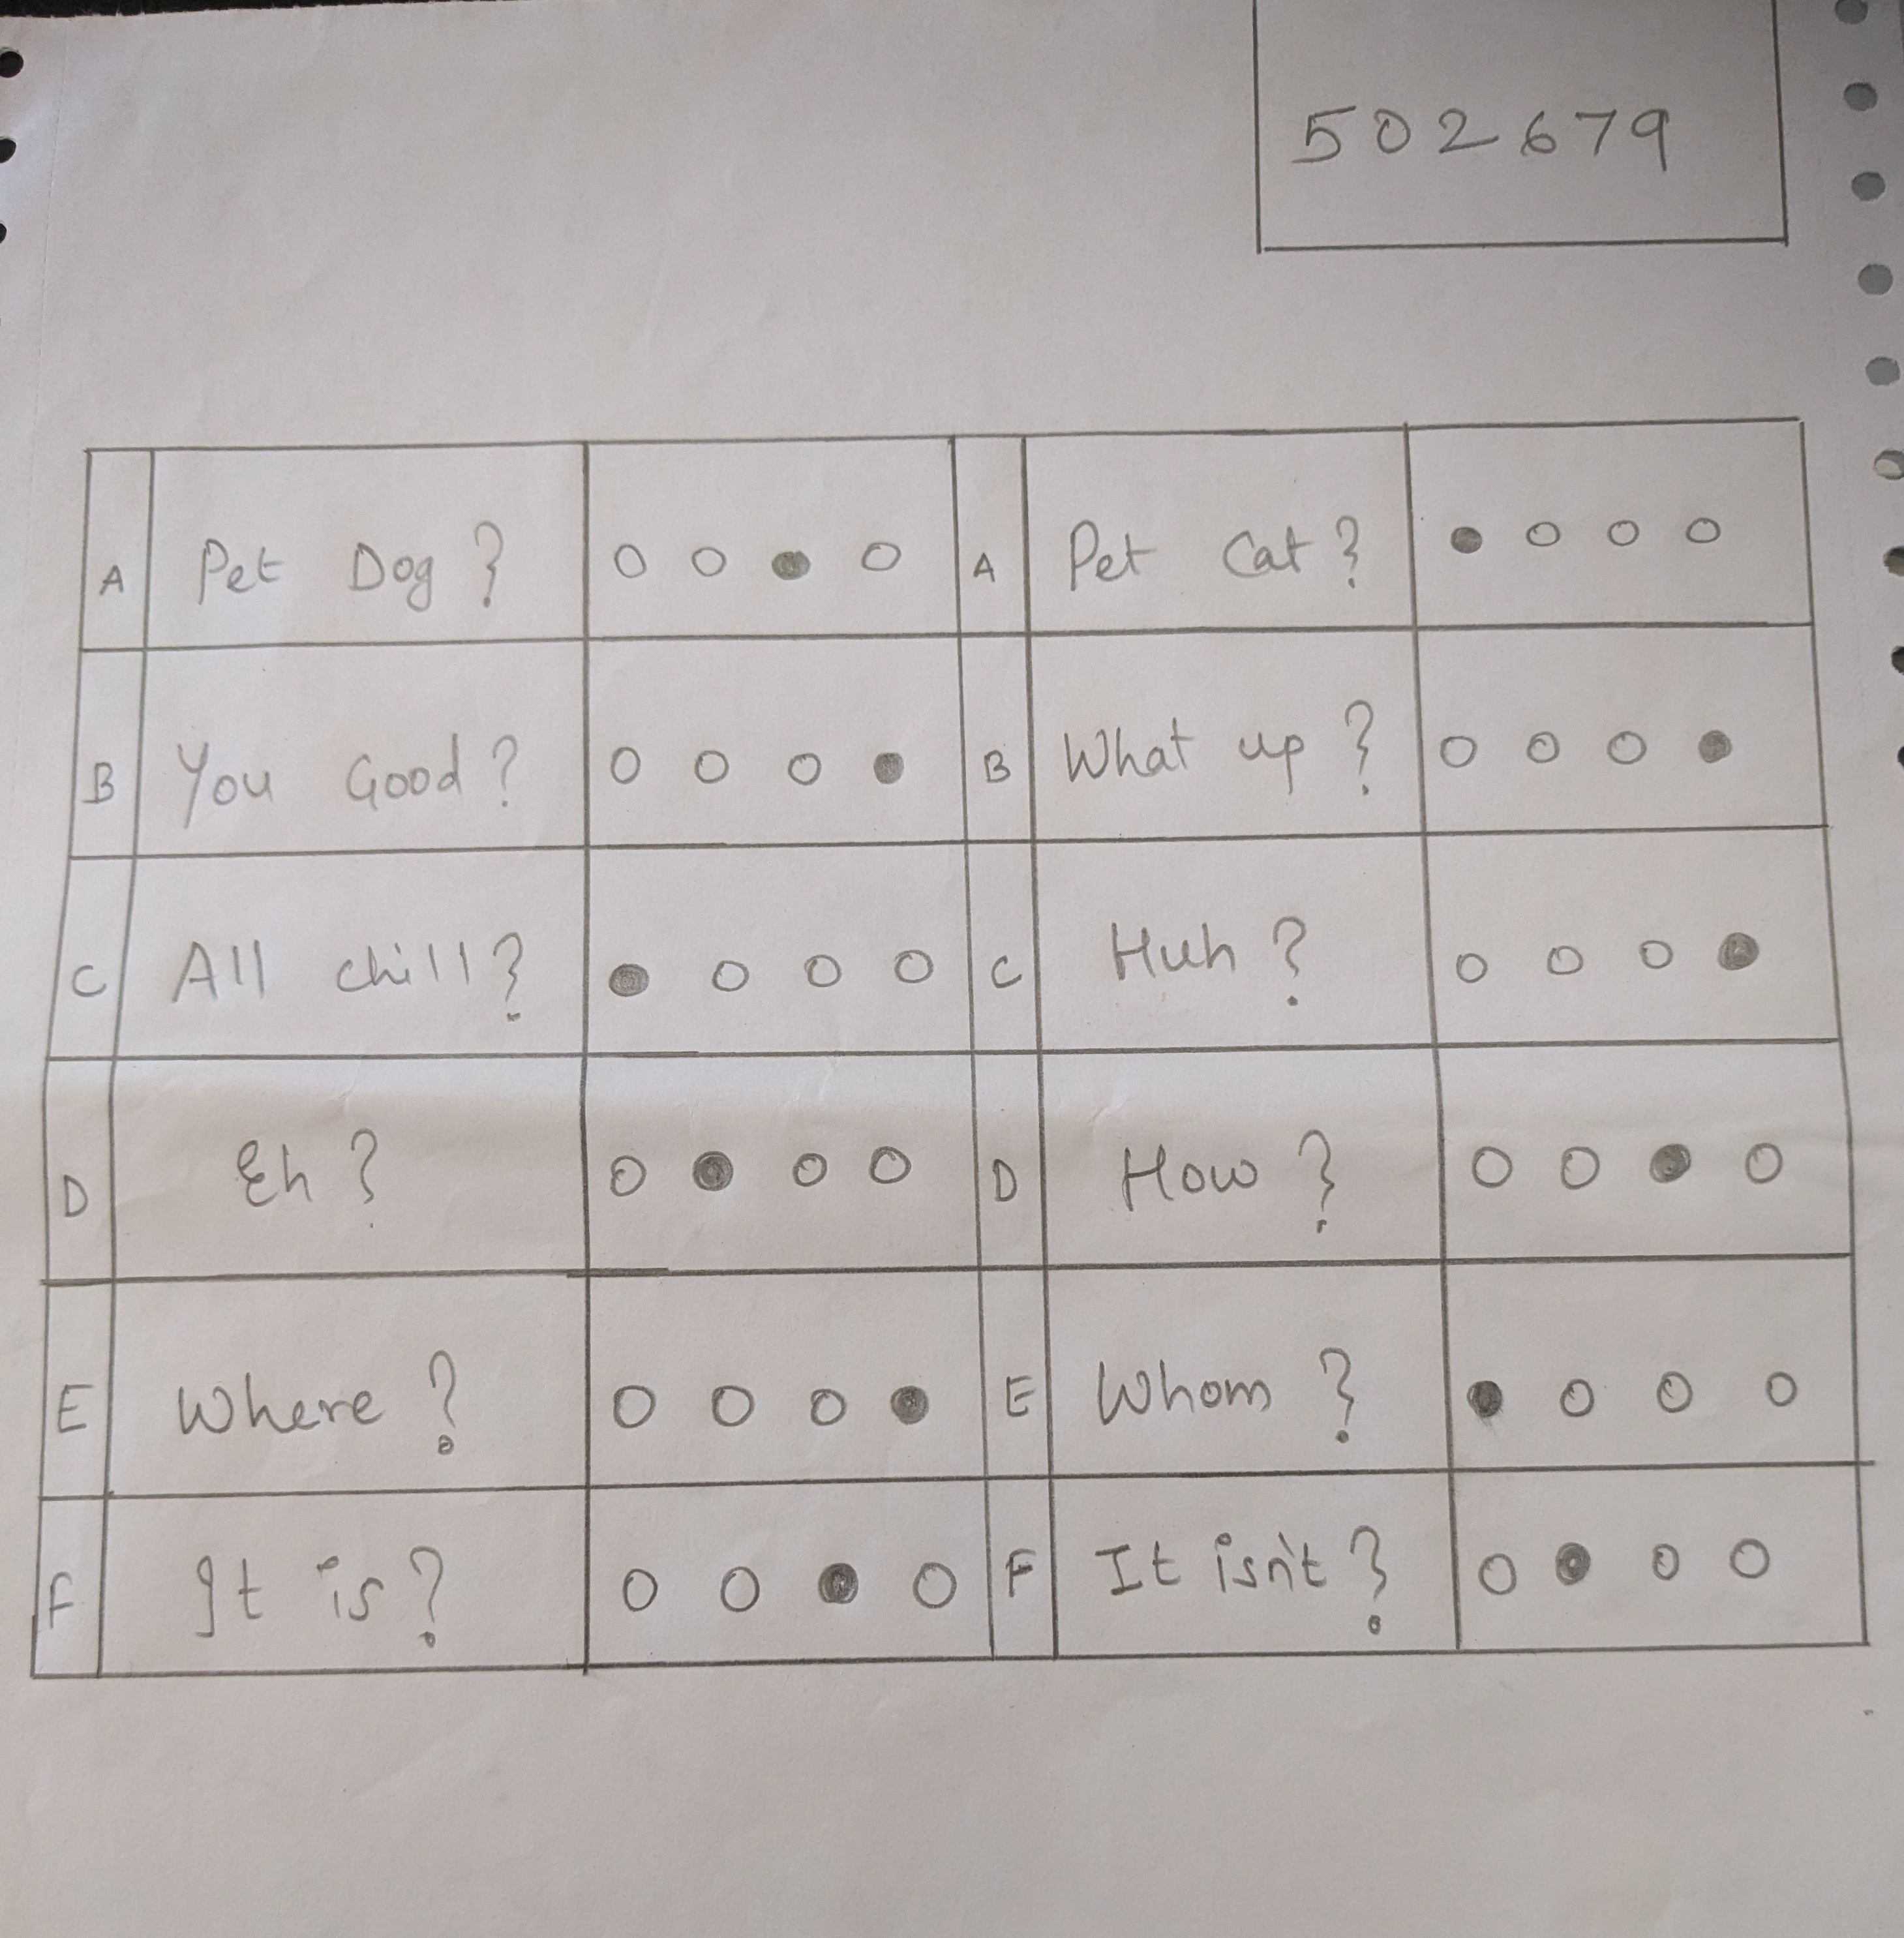 502679
A Pet Dog? A Pet Cat?
B You Good? B What up?
C All chill? C Huh?
D Eh? D How?
E Where? E Whom?
F It is? F It isn't?